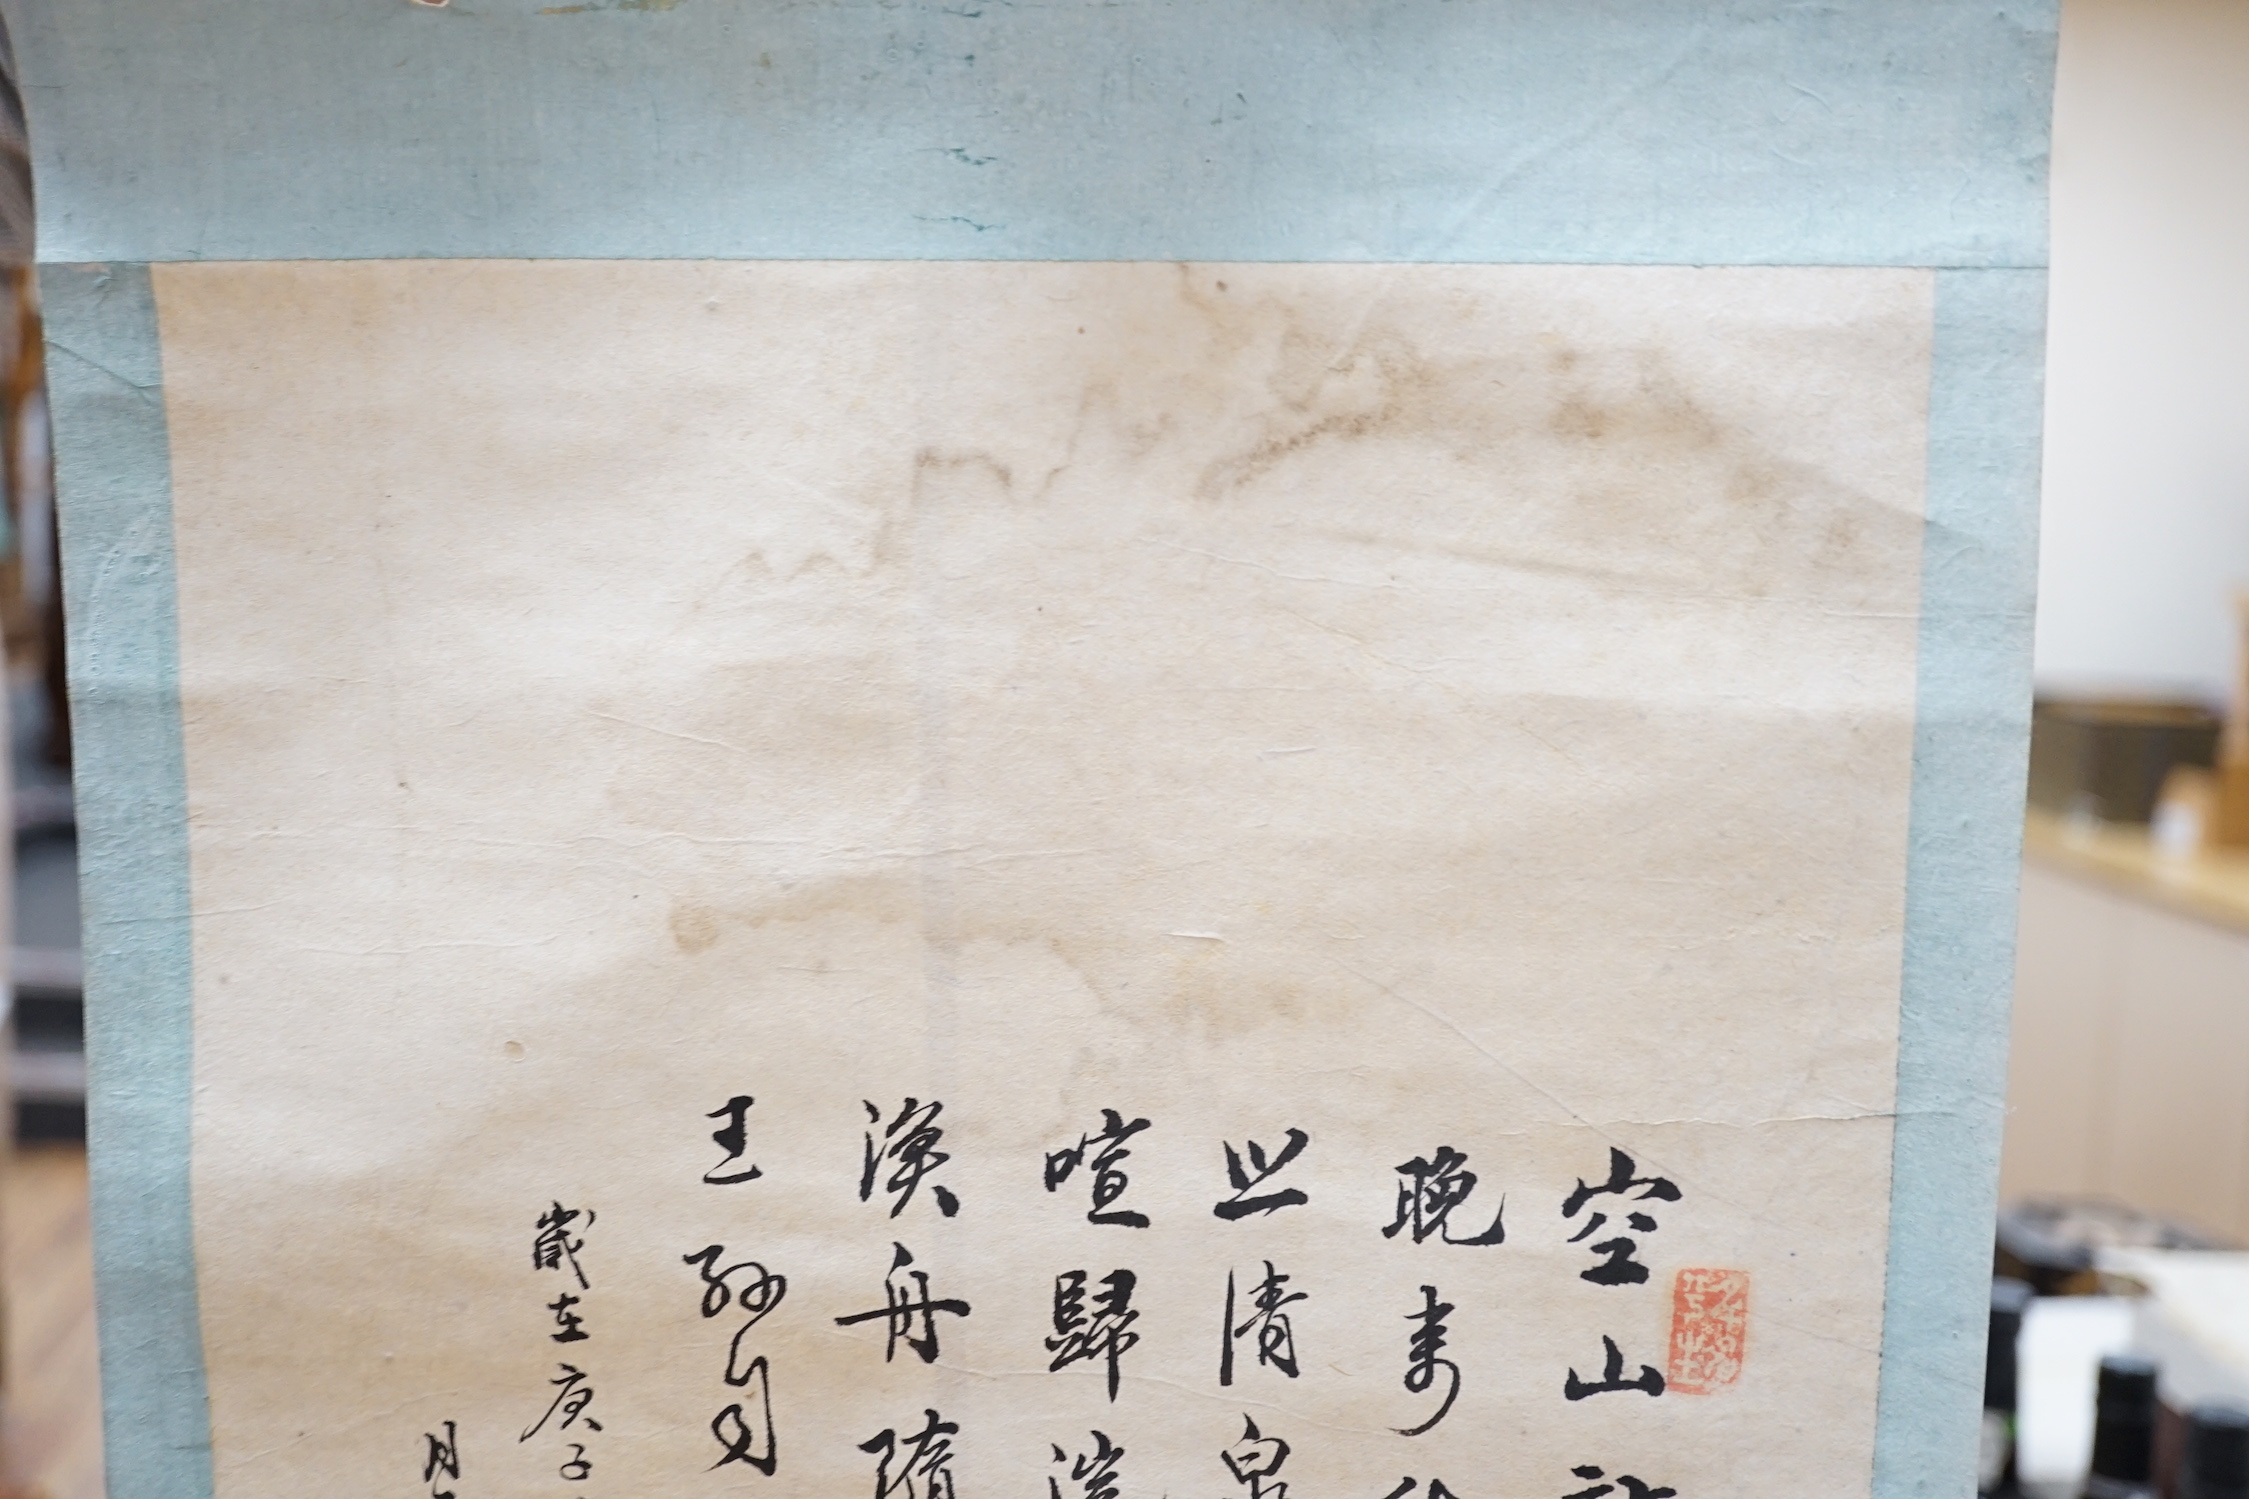 空山新
晚来秋
照清泉
喧歸浣
漁舟隨
王孫自
歲在庚子
月